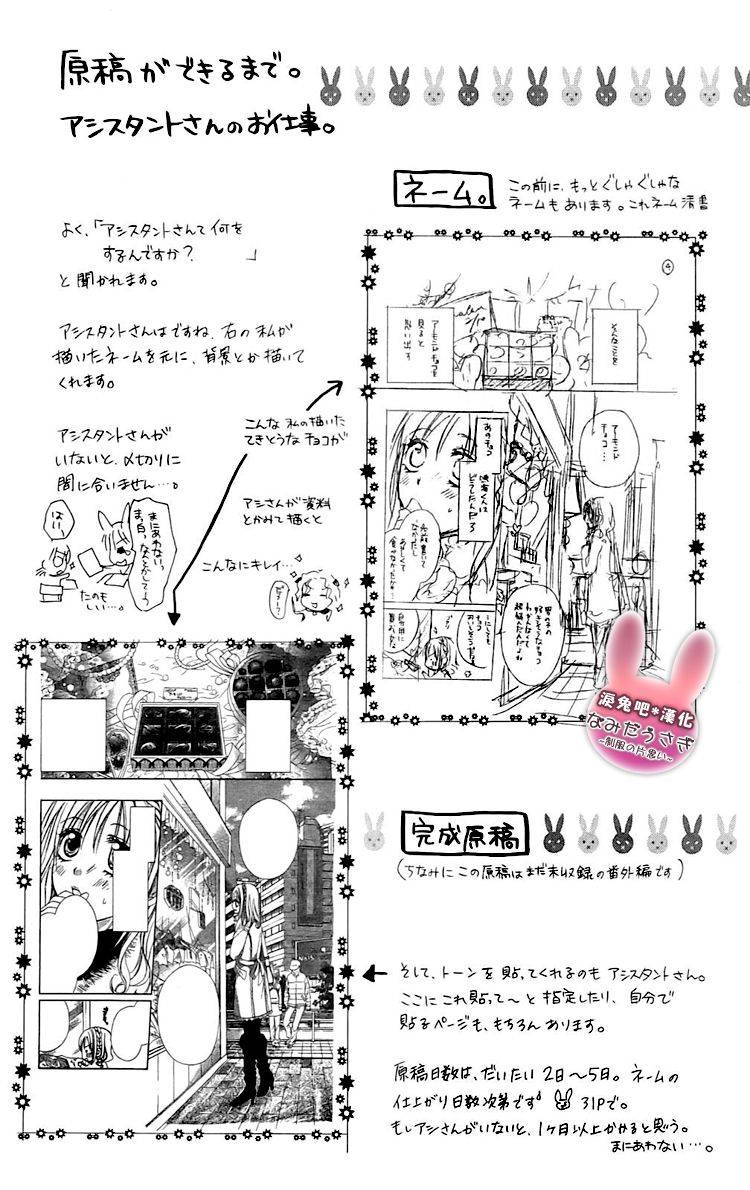 原稿ができるまで。
アシスタントさんのお仕事。
ネーム。
この前に、もっとぐしゃぐしゃな
ネームもあります。これネーム清書
よく、「アシスタントさんて何を
するんですか？」
と聞かれます。
アシスタントさんはですね、右の私が
描いたネームを元に、背景とか描いて
くれます。
アシスタントさんが
いないと、〆切りに
間に合いません…。
はいっ
まにあわない、
たのも
しい…。
こんな私の描いた
てきとうなチョコが
アシさんが資料
とかみて描くと
こんなにキレイ…
④
そんなことを
アーモンドチョコを
見ると
思い出す
アーモンド
チョコ…
あのチョコ
涙兎吧*漢化
なみだうさぎ
~制服の片思い~
完成原稿
(ちなみにこの原稿はまだ未収録の番外編です)
そして、トーンを貼ってくれるのもアシスタントさん。
ここにこれ貼って〜と指定したり、自分で
貼るページも、もちろんあります。
原稿日数は、だいたい2日〜5日。ネームの
仕上がり日数次第です 31Pで。
もしアシさんがいないと、1ヶ月以上かかると思う。
まにあわない…。